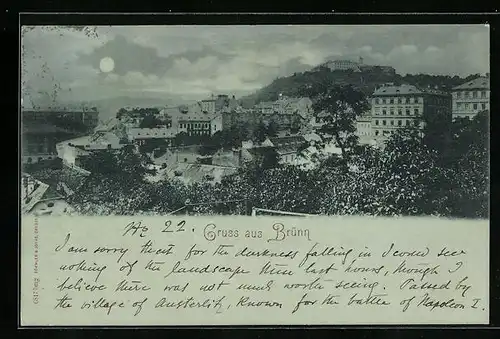 No 22. Gruss aus Brünn
I am sorry that for the darkness falling in I could see
nothing of the landscape these last hours, though I
believe there was not much worth seeing. Passed by
the village of Austerlitz, known for the battle of Napoleon I.